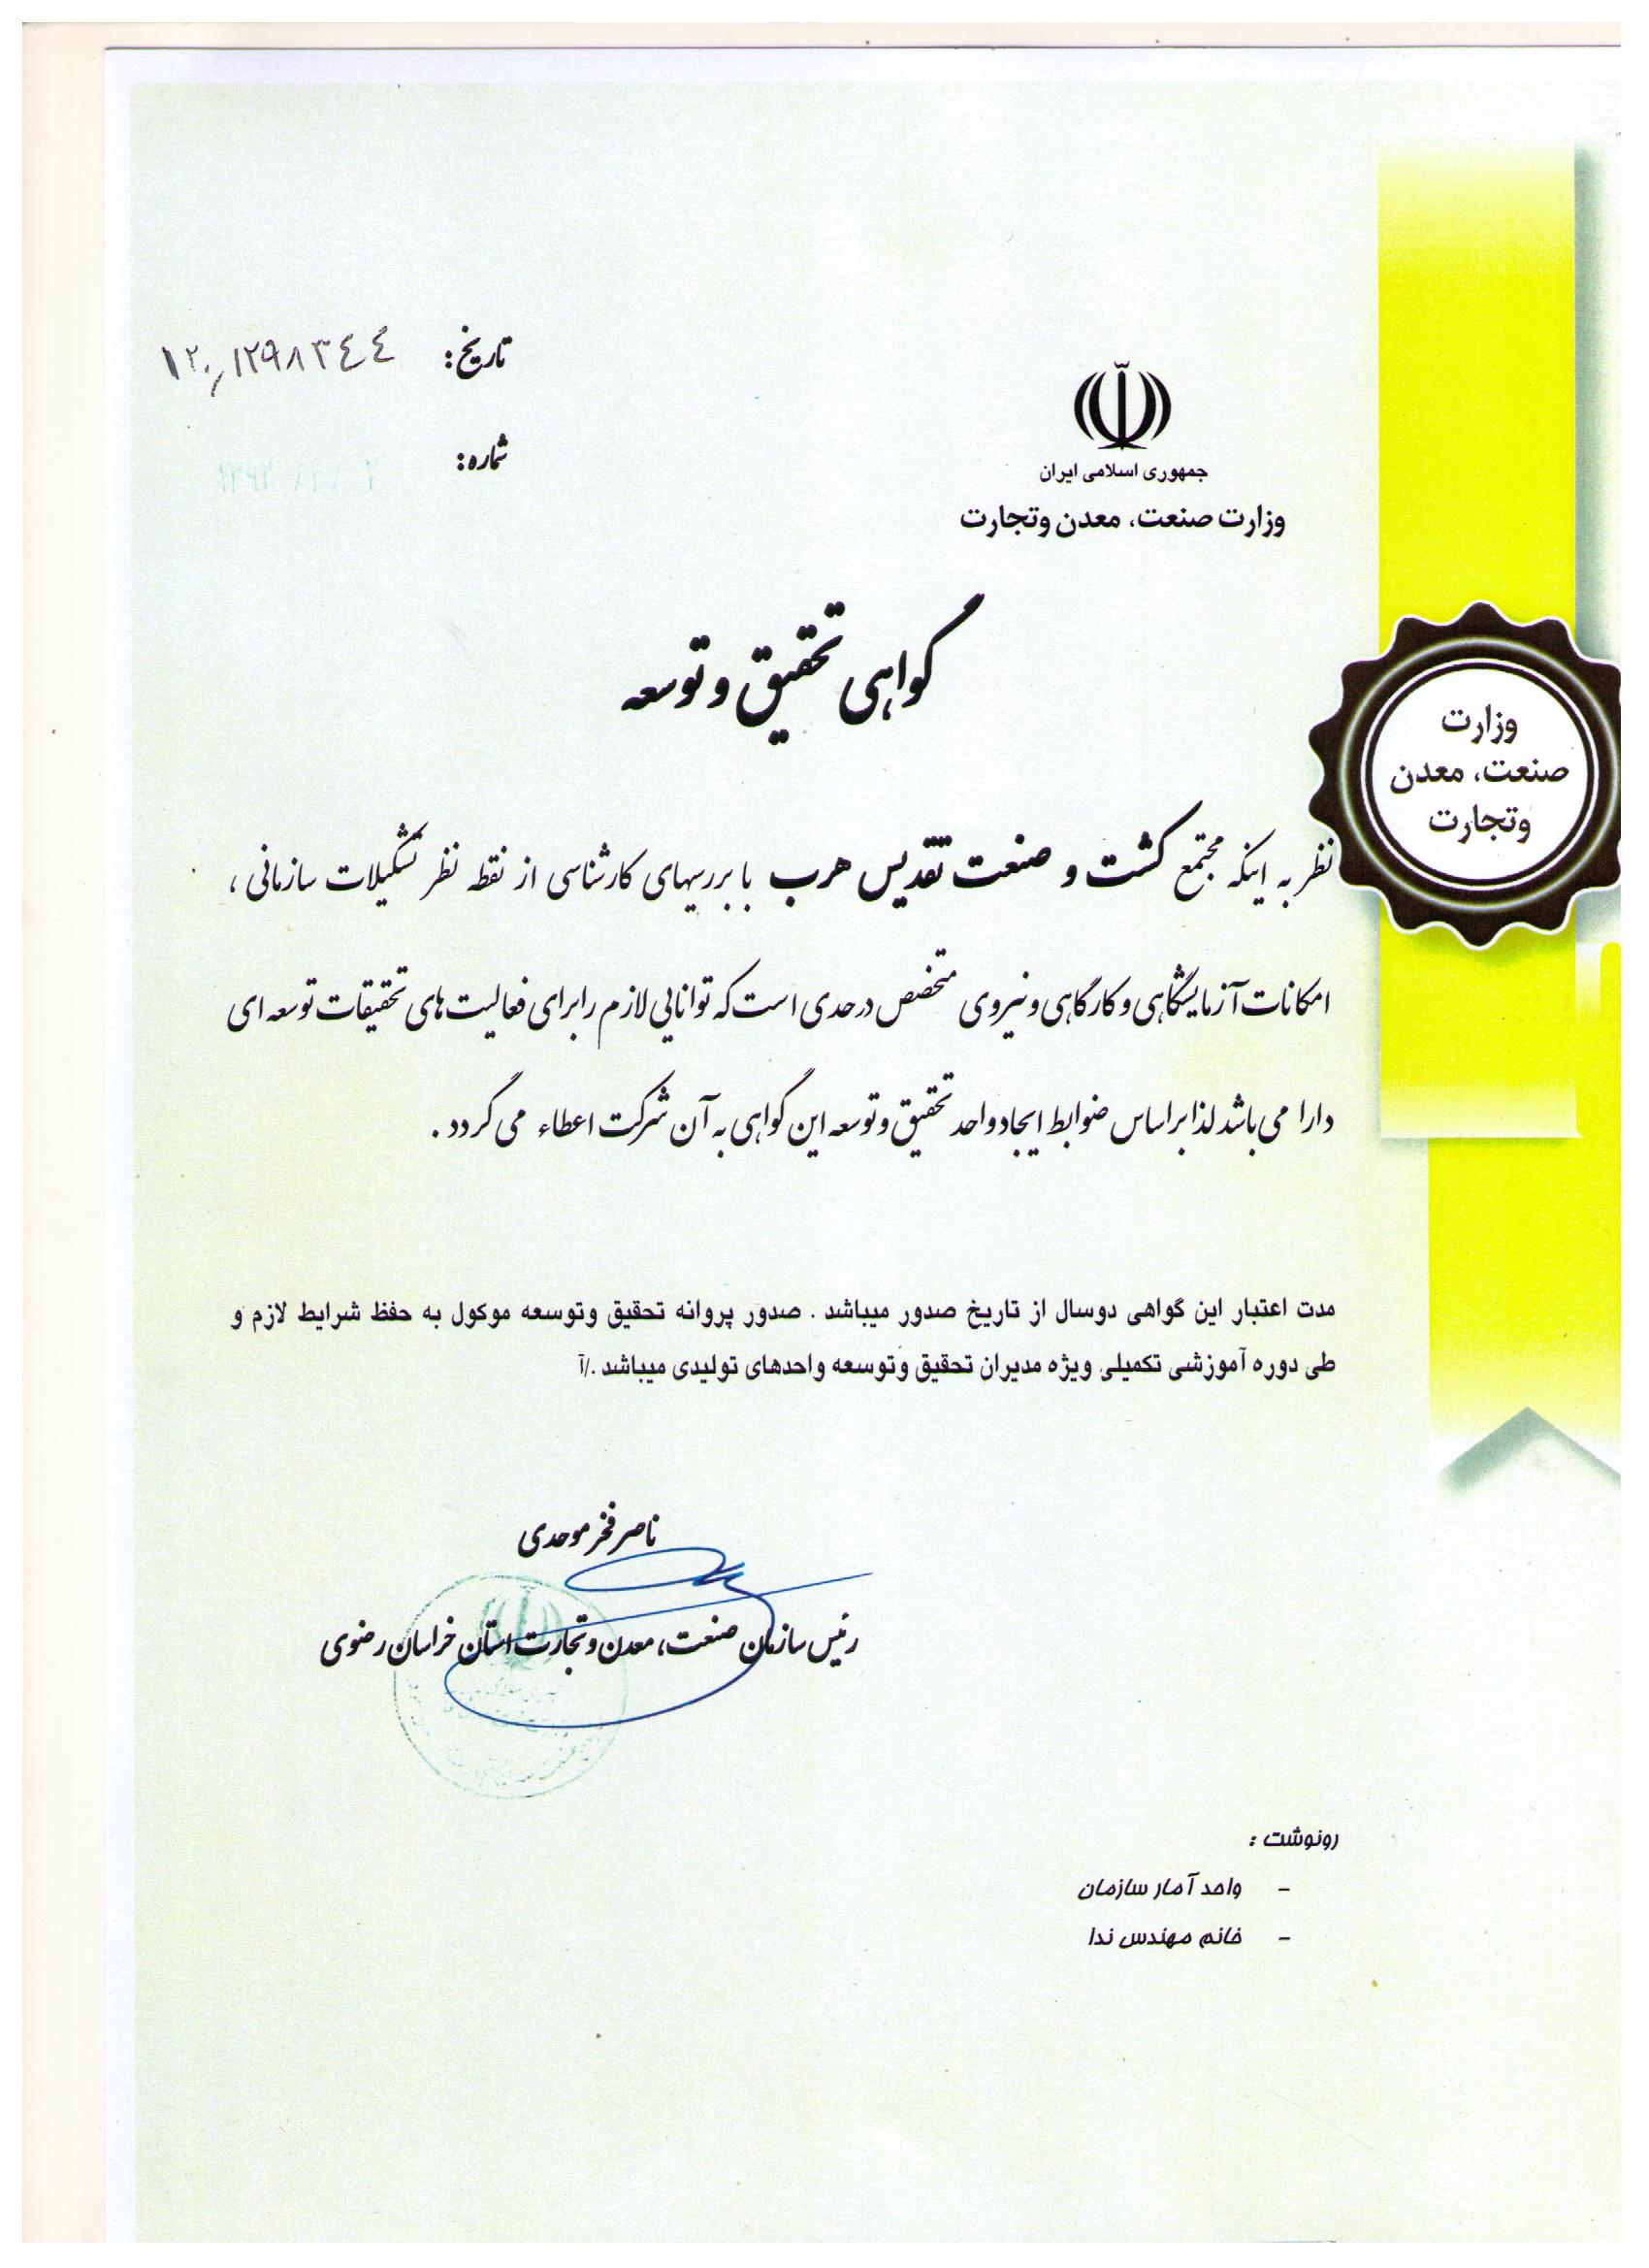 تاریخ: ۱۲۰/۱۲۹۸۳٤٤
شماره:
جمهوری اسلامی ایران
وزارت صنعت، معدن وتجارت
گواهی تحقیق و توسعه
وزارت
صنعت، معدن
وتجارت
نظر به اینکه مجتمع کشت و صنعت تقدیس هرب با بررسیهای کارشناسی از نقطه نظر تشکیلات سازمانی ،
امکانات آزمایشگاهی و کارگاهی و نیروی متخصص درحدی است که توانایی لازم را برای فعالیت های تحقیقات توسعه ای
دارا می باشد لذا براساس ضوابط ایجاد واحد تحقیق و توسعه این گواهی به آن شرکت اعطاء می گردد .
مدت اعتبار این گواهی دوسال از تاریخ صدور میباشد . صدور پروانه تحقیق وتوسعه موکول به حفظ شرایط لازم و
طی دوره آموزشی تکمیلی ویژه مدیران تحقیق وتوسعه واحدهای تولیدی میباشد ./آ
ناصر فخر موحدی
رئیس سازمان صنعت، معدن و تجارت استان خراسان رضوی
رونوشت :
- واحد آمار سازمان
- خانم مهندس ندا